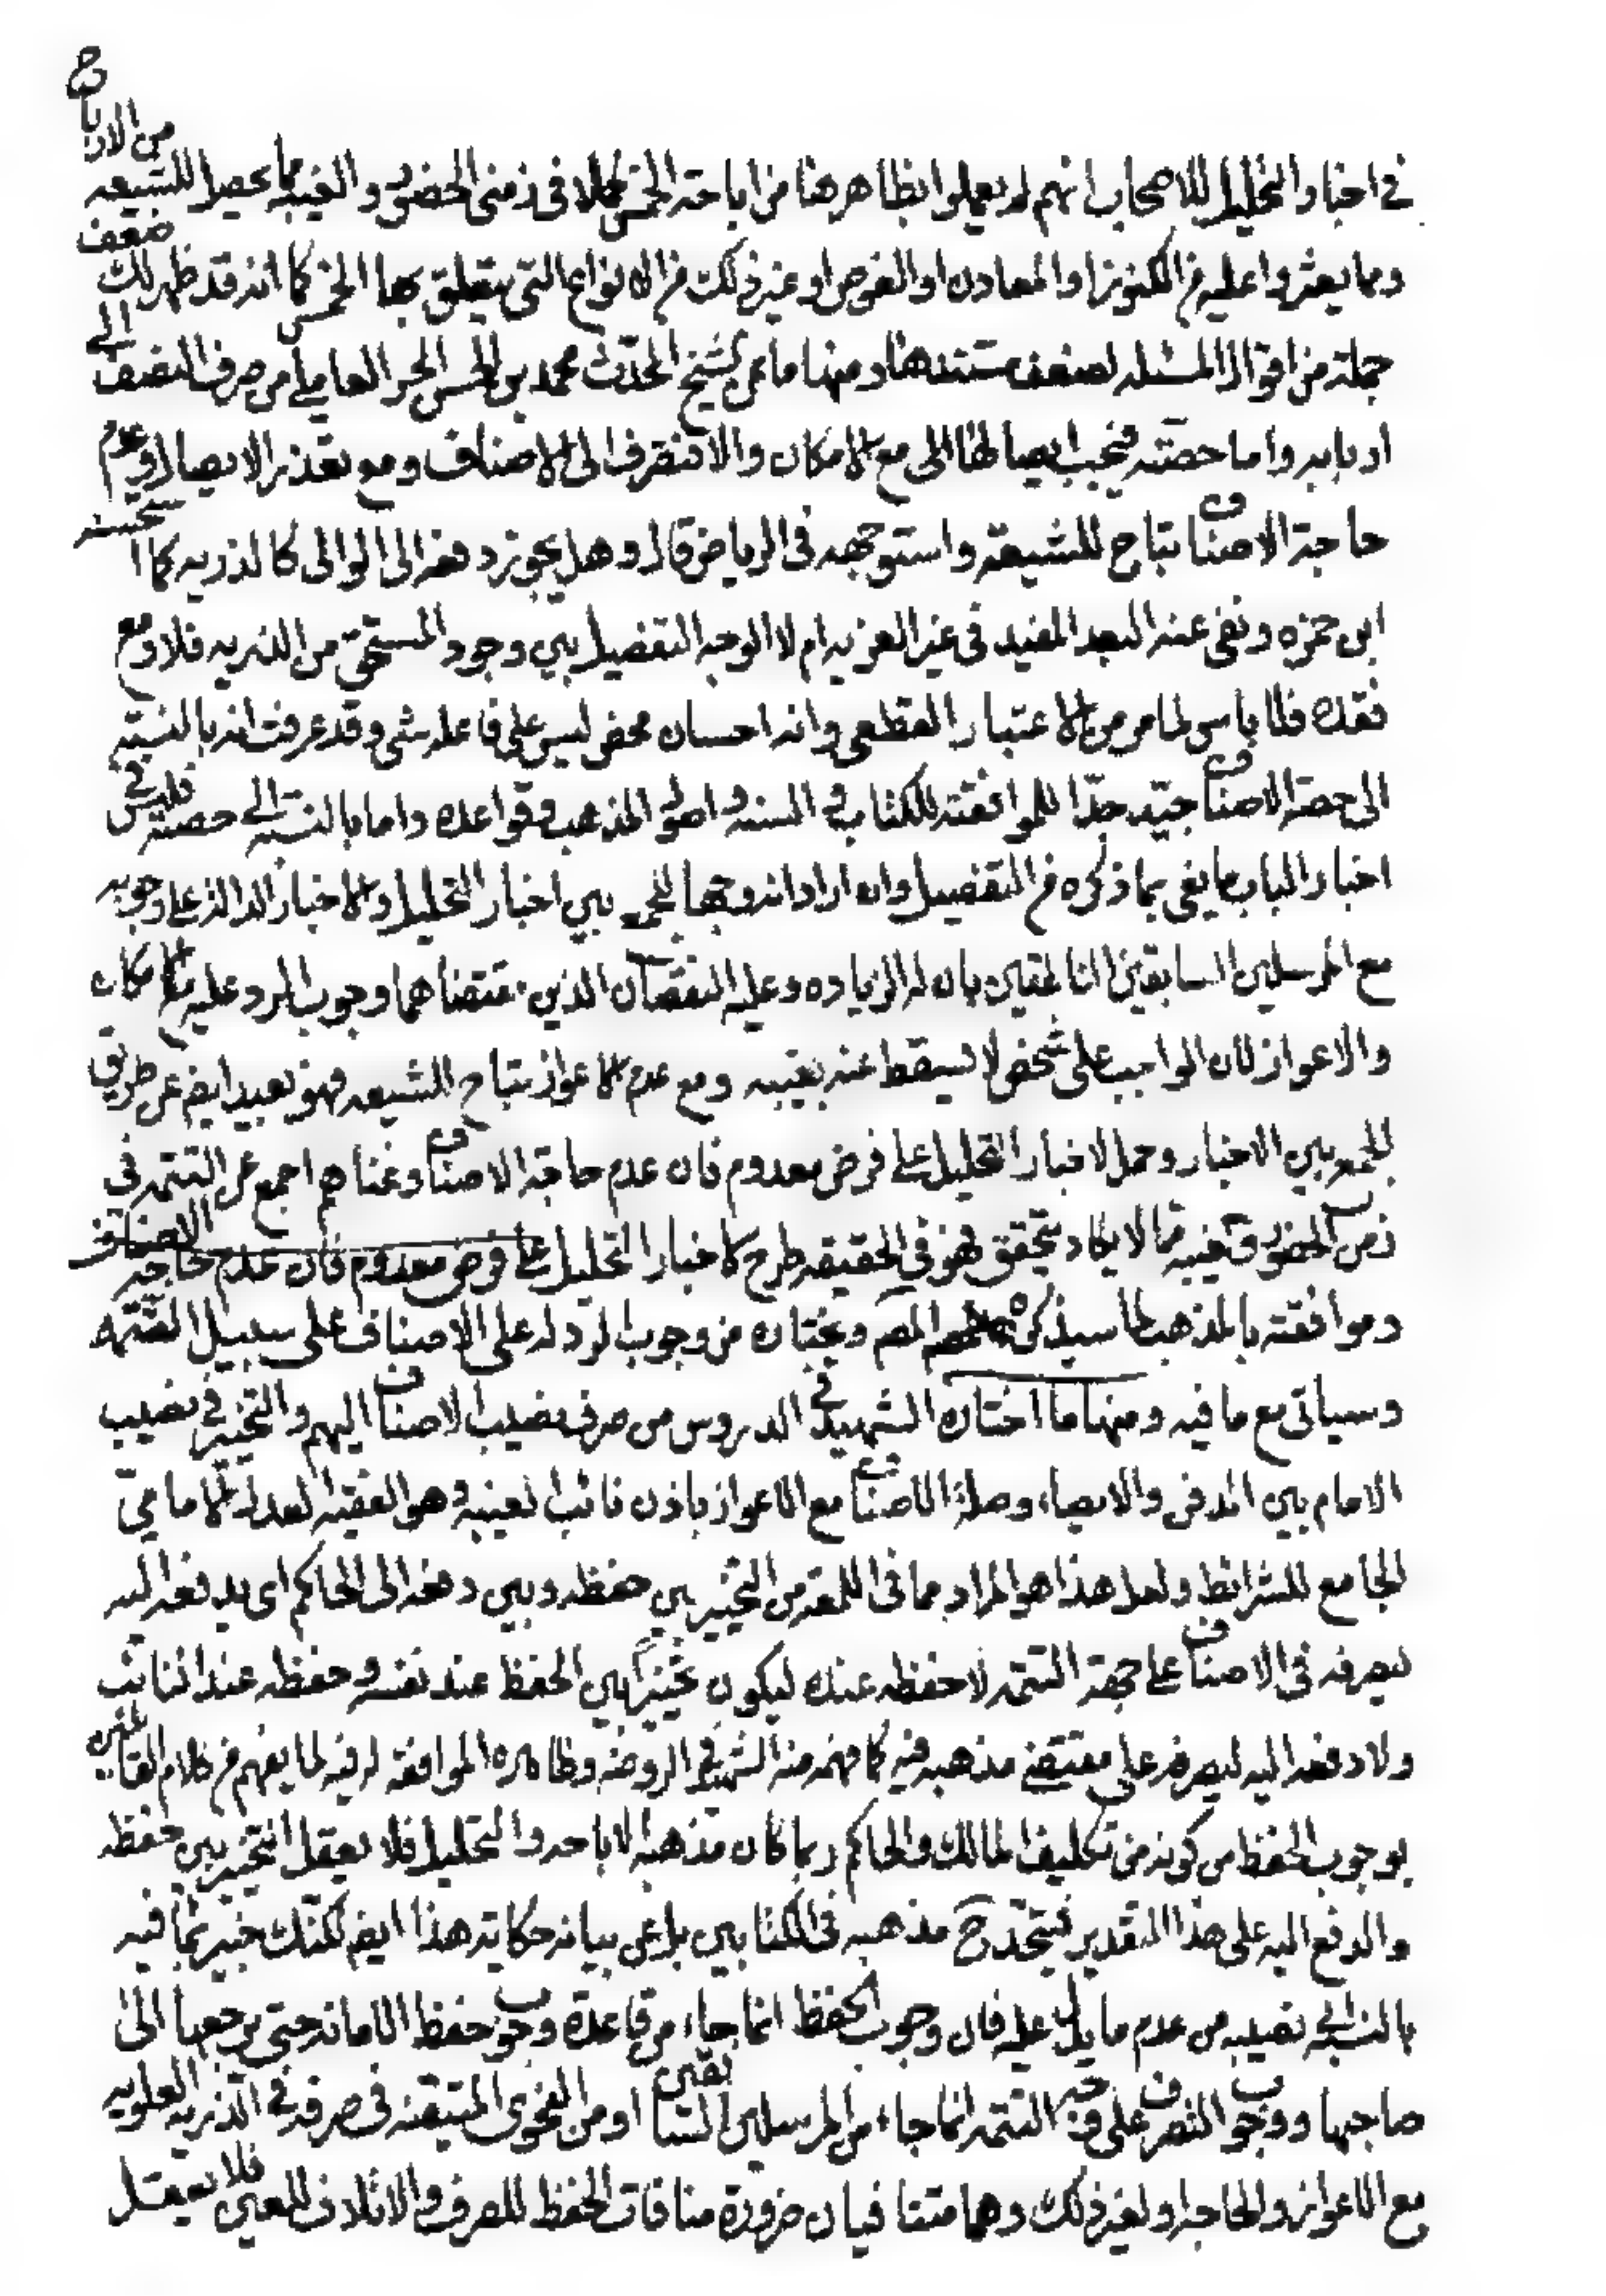 في اخبار التحليل للاصحاب انهم لم يعملوا بظاهرها من اباحة الخمس كملا في زمني الحضور والغيبة مما يحصل للشيعه من الارباح
ومما يعثروا عليه من الكنوز او المعادن او الغوص او غير ذلك من الانواع التي يتعلق بها الخمس كما انه قد ظهر لك ضعف
جملة من اقوال المسئله لضعف مستندها ومنها ما عن الشيخ المحدّث محمد بن الحسن الحر العاملي من صرف النصف الى
اربابه واما حصته فيجب ايصالها الى مع الامكان والا فتصرف الى الاصناف ومع تعذر الايصال وعدم
حاجة الاصناف تباح للشيعة واستوجهه في الرياض قال وهل يجوز دفعه الى الموالى كالذريه كما استحسنه
ابن حمزه ونفى عنه البعد المفيد في غير الغريه ام لا الوجه التفصيل بين وجود المستحق من الذريه فلا ومع
فقده فلا باس لما مر من الاعتبار القطعي وانه احسان محض ليس على فاعله شئ وقد عرفت انه بالنسبة
الى حصة الاصناف جيّد جدّا للموافقته للكتاب والسنه واصول المذهب وقواعده واما بالنسبة الى حصته فليس في
اخبار الباب ما يفى بما ذكره من التفصيل وان اراد انه وجهاً للجمع بين اخبار التحليل والاخبار الدالة على وجوبه
مع المرسلين السابقين الناطقين بان له الزياده وعليه النقصان الذين مقتضاهما وجوب الرد عليه مع الامكان
والاعواز لان الواجب على شخص لا يسقط عنه بغيبه ومع عدم الاعواز تباح للشيعه فهو بعيد ايضم عن طريق
للجمع بين الاخبار وحمل لاخبار التحليل على فرض معدوم فان عدم حاجة الاصناف وغناهم اجمع عن التتمه في
زمن الحضور وغيبه مما لا يكاد يتحقق فهو في الحقيقه طرح لاخبار التحليل على فرض معدوم فان عدم حاجة الاصناف
وموافقته بالمذهب لما سيذكره المصم ويختاره من وجوب الرد له على الاصناف على سبيل التتمه
وسياتي مع ما فيه ومنها ما اختاره الشهيد في الدروس من صرف نصيب الاصناف اليهم والتخيير في نصيب
الامام بين الدفن والايصاء وصلة الاصناف مع الاعواز باذن نائب الغيبة وهو الفقيه العدل الامامي
الجامع للشرائط ولعل هذا هو المراد مما في اللمعة من التخيير بين حفظه وبين دفعه الى الحاكم اى يدفعه اليه
ليصرفه في الاصناف على جهة التتمه لا حفظه عنده ليكون تخييرا بين الحفظ عند نفسه وحفظه عند النائب
ولا دفعه اليه ليصرفه على مقتضى مذهبه فيه كما فهمه منه الشهيد في الروضه وظاهره الموافقه له فيه لما يفهم من كلام القائلين
بوجوب الحفظ من كونه من تكليف المالك والحاكم ربما كان مذهبه الاباحه والتحليل فلا يعقل التخيير بين حفظه
والدفع اليه على هذا التقدير فيتحد ح مذهبه في الكتابين بل عن بيانه حكاية هذا ايضم لكنك خبير بما فيه
بالنسبة الى نصيبه من عدم ما يدل عليه فان وجوب الحفظ انما جاء من قاعدة وجوب حفظ الامانة حتى يرجعها الى
صاحبها ووجوب التصرف على وجه التتمه انما جاء من المرسلين السابقين او من الفحوى المتيقنه في صرفه في الذريه العلويه
مع الاعواز والحاجة ولغير ذلك وهما متنافيان ضرورة منافات الحفظ للصرف والاتلاف للعين فلا يعقل